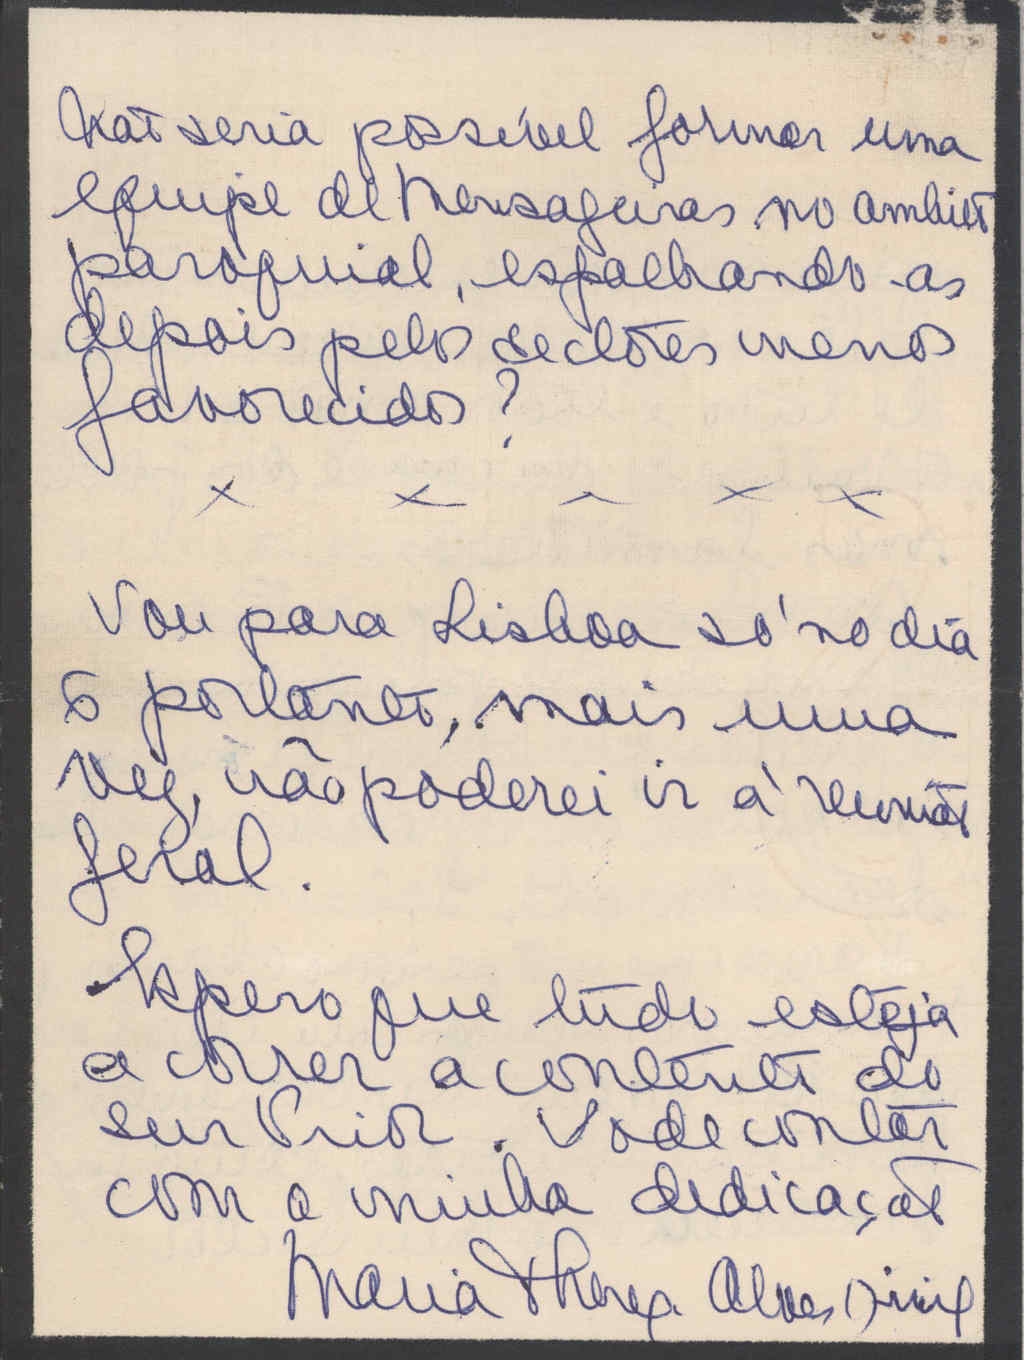 Não seria possível formar uma
equipe de Mensageiras no ambiente
paroquial, espalhando-as
depois pelos sectores menos
favorecidos?
x x x x x
Vou para Lisboa só no dia
6 portanto, mais uma
vez, não poderei ir à reunião
geral.
Espero que tudo esteja
a correr a contento do
senr Prior. Vade contar
com a minha dedicação
Maria Thereza Alves Diniz